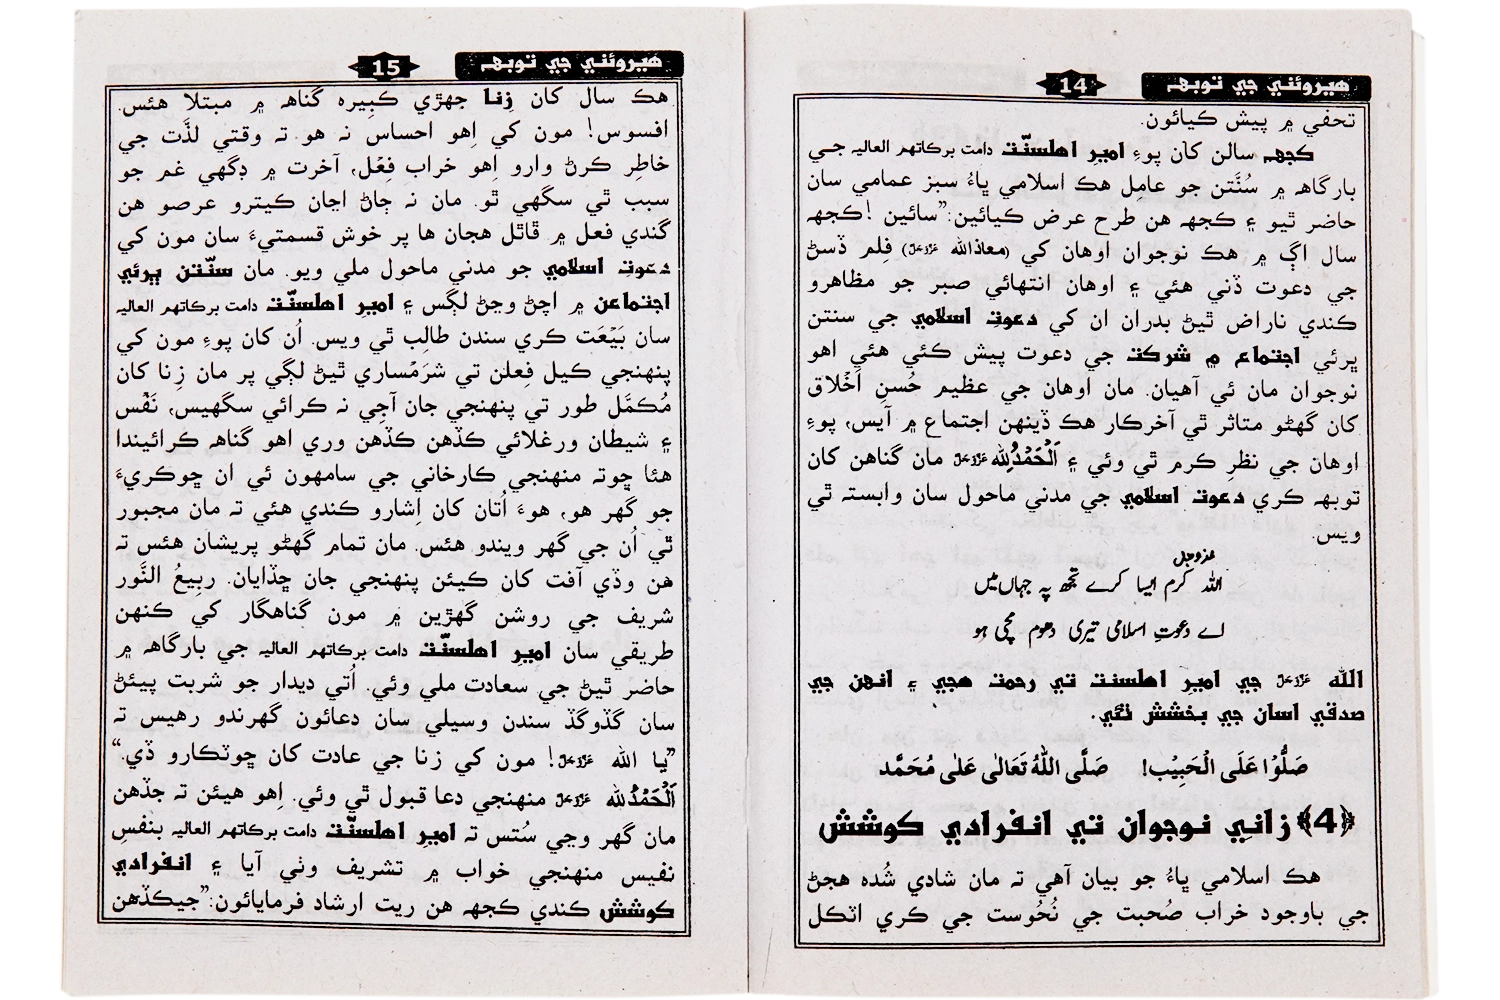 هيروئني جي توبهہ
14
تحفي ۾ پيش ڪيائون.
ڪجهہ سالن کان پوءِ اميرِ اهلسنّت دامت برکاتهم العاليہ جي
بارگاهہ ۾ سُنَّتن جو عامِل هڪ اسلامي ڀاءُ سبز عمامي سان
حاضر ٿيو ۽ ڪجهہ هن طرح عرض ڪيائين:”سائين !ڪجهہ
سال اڳ ۾ هڪ نوجوان اوهان کي (معاذالله عَزَّوَجَلَّ) فِلم ڏسڻ
جي دعوت ڏني هئي ۽ اوهان انتهائي صبر جو مظاهرو
ڪندي ناراض ٿيڻ بدران ان کي دعوتِ اسلامي جي سنتن
ڀرئي اجتماع ۾ شرڪت جي دعوت پيش ڪئي هئي اهو
نوجوان مان ئي آهيان. مان اوهان جي عظيم حُسنِ اَخْلاق
کان گهڻو متاثر ٿي آخرڪار هڪ ڏينهن اجتماع ۾ آيس، پوءِ
اوهان جي نظرِ ڪرم ٿي وئي ۽ اَلْحَمْدُلِلّٰه عَزَّوَجَلَّ مان گناهن کان
توبهہ ڪري دعوتِ اسلامي جي مدني ماحول سان وابستہ ٿي
ويس.
عزوجل
اللہ کرم ایسا کرے تجھ پہ جہاں میں
اے دعوتِ اسلامی تیری دھوم مچی ہو
الله عَزَّوَجَلَّ جي اميرِ اهلسنت تي رحمت هجي ۽ انهن جي
صدقي اسان جي بخشش ٿئي.
صَلُّوْا عَلَى الْحَبِيْب! صَلَّى اللّٰهُ تَعَالٰى عَلٰى مُحَمَّد
﴿4﴾ زاني نوجوان تي انفرادي ڪوشش
هڪ اسلامي ڀاءُ جو بيان آهي تہ مان شادي شُده هجڻ
جي باوجود خراب صُحبت جي نُحُوست جي ڪري اٽڪل
هيروئني جي توبهہ
15
هڪ سال کان زِنا جهڙي ڪبِيره گناهہ ۾ مبتلا هئس.
افسوس! مون کي اِهو احساس نہ هو تہ وقتي لذَّت جي
خاطِر ڪرڻ وارو اِهو خراب فِعْل، آخرت ۾ ڊگهي غم جو
سبب ٿي سگهي ٿو. مان نہ ڄاڻ اڃان ڪيترو عرصو هن
گندي فعل ۾ ڦاٿل هجان ها پر خوش قسمتيءَ سان مون کي
دعوتِ اسلامي جو مدني ماحول ملي ويو. مان سنّتن ڀرئي
اجتماعن ۾ اچڻ وڃڻ لڳس ۽ اميرِ اهلسنّت دامت برکاتهم العاليہ
سان بَيْعَت ڪري سندن طالِب ٿي ويس. اُن کان پوءِ مون کي
پنهنجي ڪيل فِعلن تي شَرَمْساري ٿيڻ لڳي پر مان زِنا کان
مُڪمَّل طور تي پنهنجي جان آجي نہ ڪرائي سگهيس، نَفْس
۽ شيطان ورغلائي ڪڏهن ڪڏهن وري اهو گناهہ ڪرائيندا
هئا ڇوتہ منهنجي ڪارخاني جي سامهون ئي ان ڇوڪريءَ
جو گهر هو، هوءَ اُتان کان اِشارو ڪندي هئي تہ مان مجبور
ٿي اُن جي گهر ويندو هئس. مان تمام گهڻو پريشان هئس تہ
هن وڏي آفت کان ڪيئن پنهنجي جان ڇڏايان. ربِيعُ النَّور
شريف جي روشن گهڙين ۾ مون گناهگار کي ڪنهن
طريقي سان اميرِ اهلسنّت دامت برکاتهم العاليہ جي بارگاهہ ۾
حاضر ٿيڻ جي سعادت ملي وئي. اُتي ديدار جو شربت پيئڻ
سان گڏوگڏ سندن وسيلي سان دعائون گهرندو رهيس تہ
”يا الله عَزَّوَجَلَّ! مون کي زنا جي عادت کان ڇوٽڪارو ڏي.“
اَلْحَمْدُلِلّٰه عَزَّوَجَلَّ منهنجي دعا قبول ٿي وئي. اِهو هيئن تہ جڏهن
مان گهر وڃي سُتس تہ اميرِ اهلسنّت دامت برکاتهم العاليہ بنفسِ
نفيس منهنجي خواب ۾ تشريف وٺي آيا ۽ انفرادي
ڪوشش ڪندي ڪجهہ هن ريت ارشاد فرمايائون:”جيڪڏهن